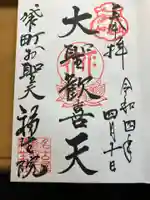 奉拝
令和四年
四月十日
大聖歓喜天
袋町お聖天
福生院